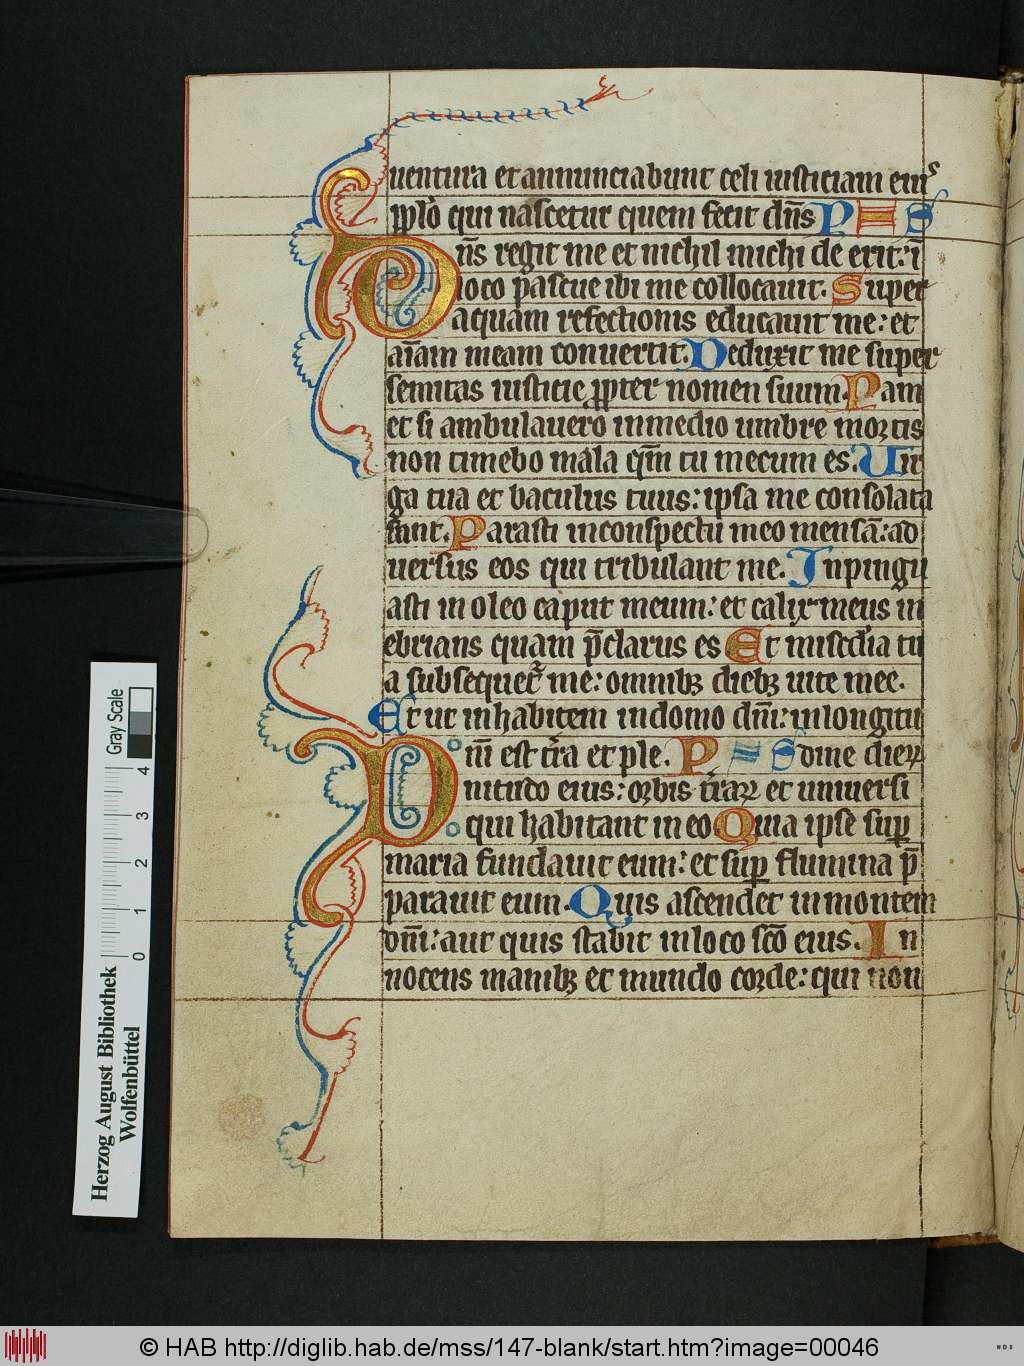 uentura et annunciabunt celi iusticiam eiꝰ
pp̄lo qui nascetur quem fecit dn̄s P S
Dn̄s regit me et nichil michi de erit: ī
loco pascue ibi me collocauit. Super
aquam refectionis educauit me: et
aīam meam conuertit. Deduxit me super
semitas iusticie ꝓpter nomen suum. Nam
et si ambulauero in medio umbre mortis
non timebo mala qm̄ tu mecum es. Uir
ga tua et baculus tuus: ipsa me consolata
sunt. Parasti in conspectu meo mensā: ad
uersus eos qui tribulant me. Inpingu
asti in oleo caput meum: et calix meus in
ebrians quam p̄clarus es Et misc̄dia tu
a subsequet᷑ me: omnibꝫ diebꝫ uite mee.
Et ut inhabitem in domo dn̄i: in longitu
Dn̄i est tr̄a et ple. P S dine dieꝝ
nitudo eius: orbis tr̄aꝝ et uniuersi
qui habitant in eo Quia ipse suꝑ
maria fundauit eum: et suꝑ flumina p̄
parauit eum. Quis ascendet in montem
dn̄i: aut quis stabit in loco sc̄o eius. In
nocens manibꝫ et mundo corde: qui non
Gray Scale
4 3 2 1 0
Herzog August Bibliothek
Wolfenbüttel
© HAB http://diglib.hab.de/mss/147-blank/start.htm?image=00046